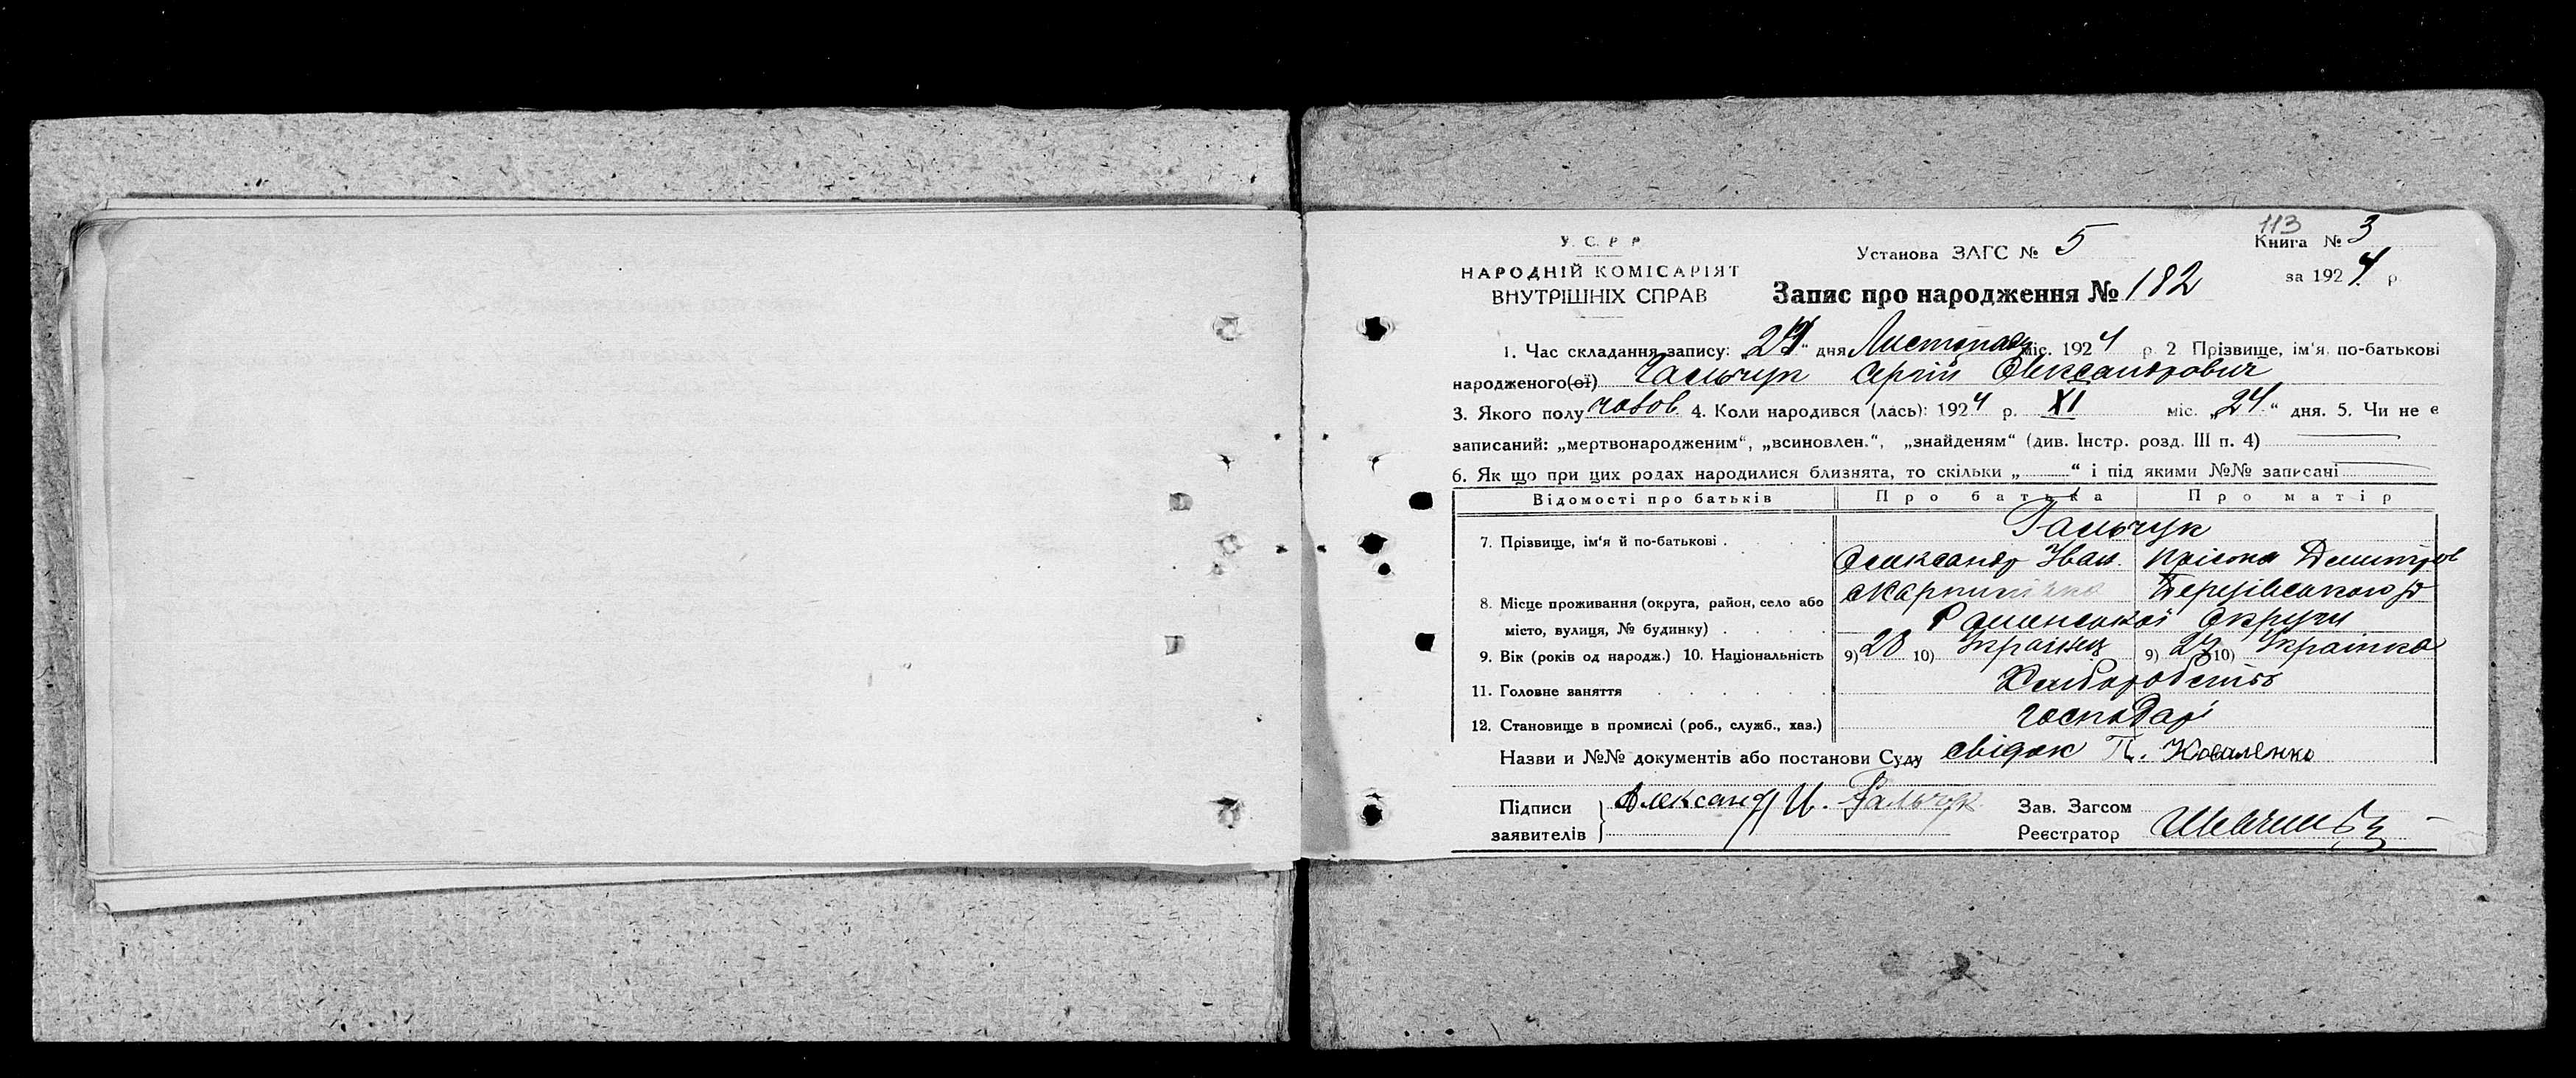 113
У. С. Р Р
Установа ЗАГС № 5
Книга № 3
НАРОДНІЙ КОМІСАРІЯТ
ВНУТРІШНІХ СПРАВ
Запис про народження № 182
за 1924 р.
1. Час складання запису: „ “ дня Листопаду міс. 1924 р. 2 Прізвище, ім'я, по-батькові
народженого(ої) Гальчук Сергій Олександрович
3. Якого полу чолов. 4. Коли народився (лась): 1924 р. XI міс. „24“ дня. 5. Чи не є
записаний: „мертвонародженим“, „всиновлен.“, „знайденям“ (див. Інстр. розд. III п. 4)
6. Як що при цих родах народилися близнята, то скільки „ “ і під якими №№ записані
Відомості про батьків Про батька Про матір
Гальчук
7. Прізвище, ім'я й по-батькові .
Олександр Іван.
8. Місце проживання (округа, район, село або
місто, вулиця, № будинку) Роменської округи
9. Вік (років од народж.) 10. Національність 9) 28 10) Українец 9) 10) Українка
11. Головне заняття Хліборобство
12. Становище в промислі (роб., служб., хаз.) господарі
Назви и №№ документів або постанови Суду свідок П. Коваленко
Підписи Александр И. Гальчук
заявителів
Зав. Загсом
Реєстратор